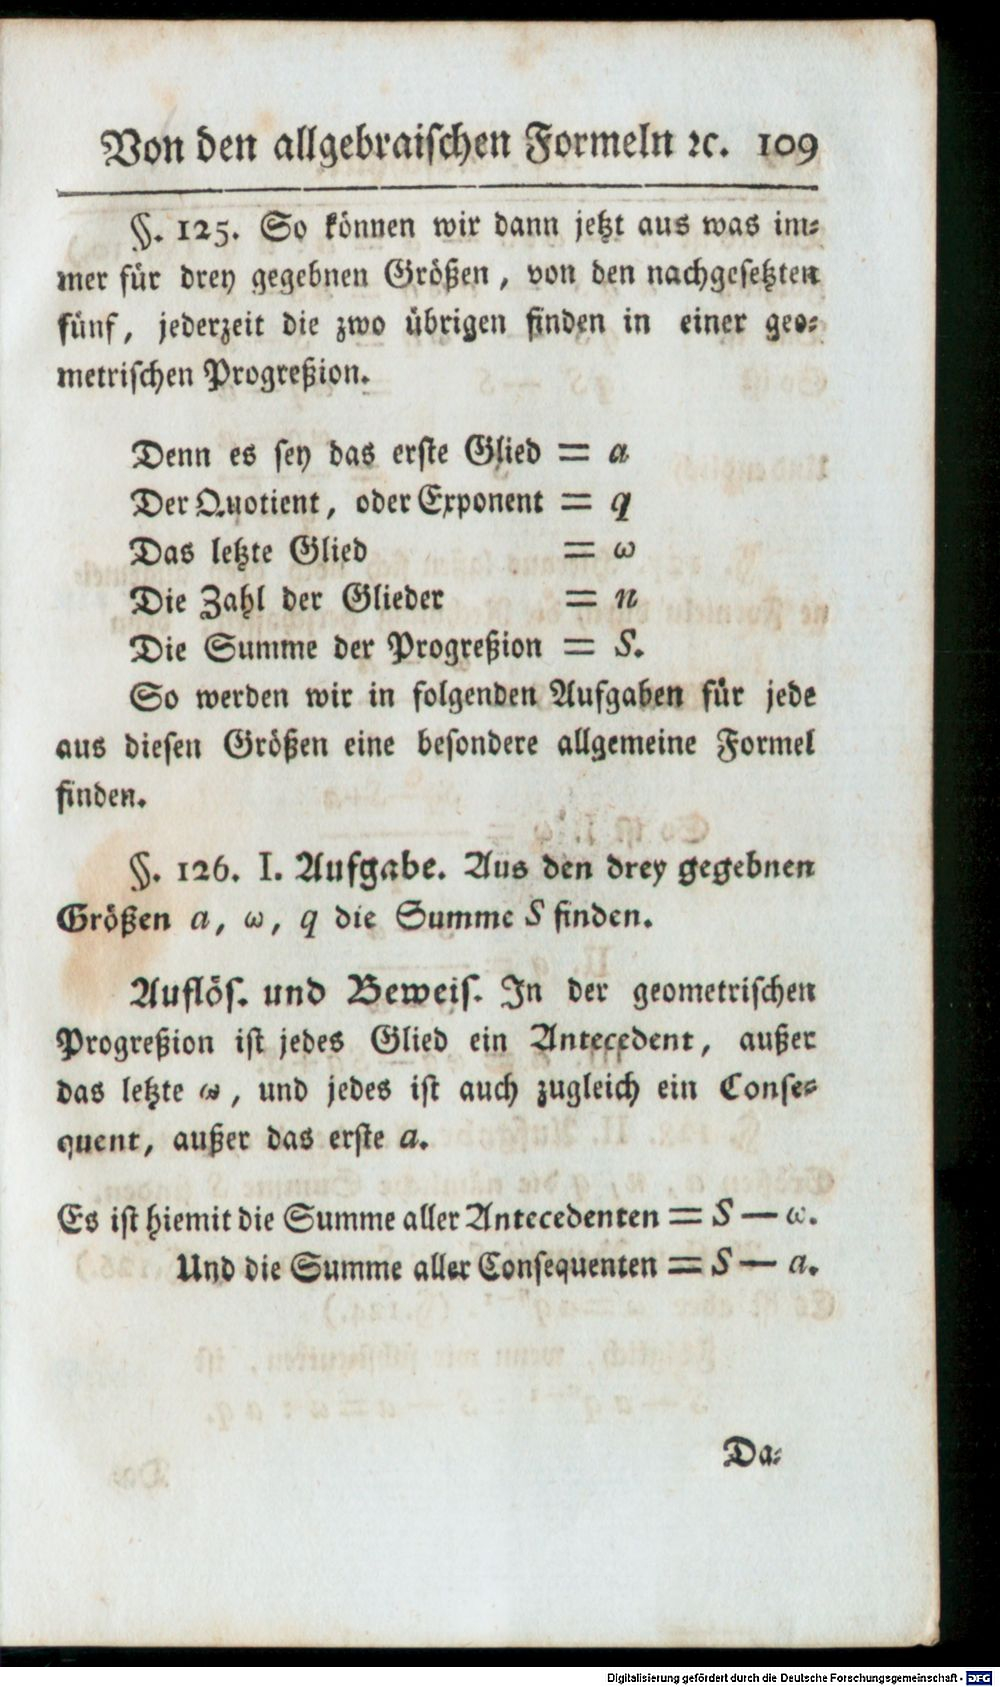 Von den allgebraischen Formeln ꝛc. 109
§. 125. So können wir dann jetzt aus was im⸗
mer für drey gegebnen Größen, von den nachgesetzten
fünf, jederzeit die zwo übrigen finden in einer geo⸗
metrischen Progreßion.
Denn es sey das erste Glied = a
Der Quotient, oder Exponent = q
Das letzte Glied = ω
Die Zahl der Glieder = n
Die Summe der Progreßion = S.
So werden wir in folgenden Aufgaben für jede
aus diesen Größen eine besondere allgemeine Formel
finden.
§. 126. I. Aufgabe. Aus den drey gegebnen
Größen a, ω, q die Summe S finden.
Auflös. und Beweis. In der geometrischen
Progreßion ist jedes Glied ein Antecedent, außer
das letzte ω, und jedes ist auch zugleich ein Conse⸗
quent, außer das erste a.
Es ist hiemit die Summe aller Antecedenten = S — ω.
Und die Summe aller Consequenten = S — a.
Da⸗
Digitalisierung gefördert durch die Deutsche Forschungsgemeinschaft - DFG